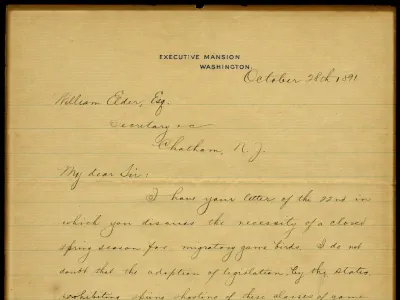 EXECUTIVE MANSION
WASHINGTON.
October 28th, 1891
William Elder, Esq.
Secretary
Chatham, N. J.
My dear Sir:
I have your letter of the 22nd in
which you discuss the necessity of a close
spring season for migratory game birds. I do not
doubt that the adoption of legislation by the States
prohibiting spring shooting of these classes of game